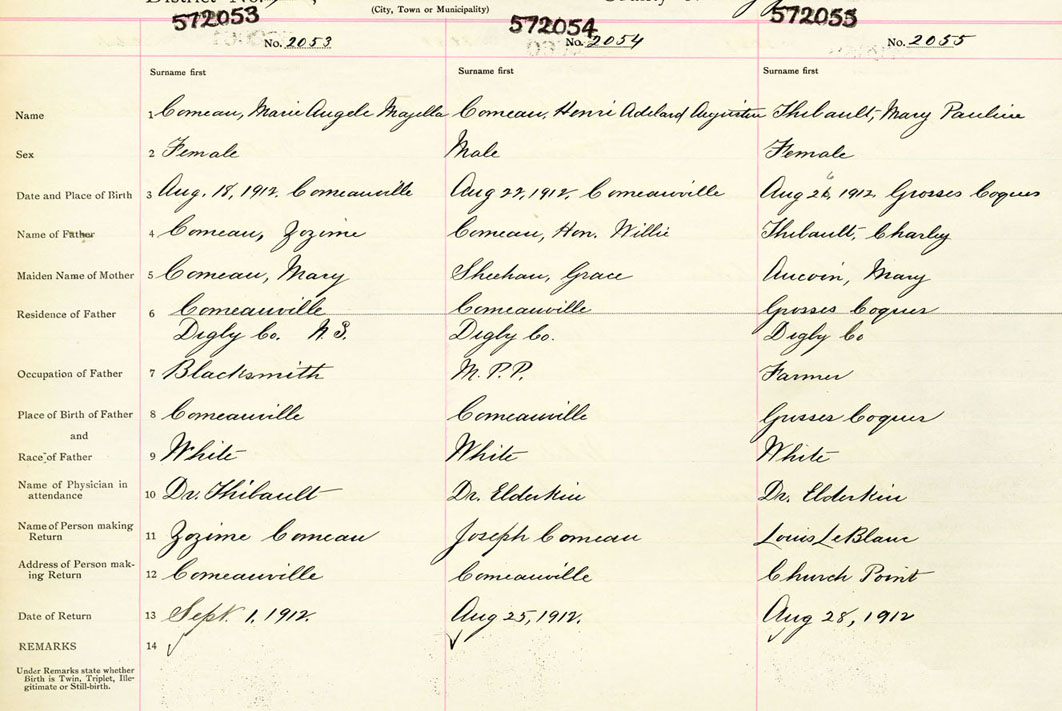 District No.
(City, Town or Municipality)
572053 572054 572055
No. 2053 No. 2054 No. 2055
Surname first Surname first Surname first
Name 1 Comeau, Marie Angele Majella Comeau, Henri Adelard Augustin Thibault, Mary Pauline
Sex 2 Female Male Female
Date and Place of Birth 3 Aug. 18, 1912. Comeauville Aug 22, 1912. Comeauville Aug 26, 1912. Grosses Coques
Name of Father 4 Comeau, Zozime Comeau, Hon. Willie Thibault, Charley
Maiden Name of Mother 5 Comeau, Mary Sheehan, Grace Aucoin, Mary
Residence of Father 6 Comeauville Comeauville Grosses Coques
Digby Co. N.S. Digby Co. Digby Co
Occupation of Father 7 Blacksmith M.P.P. Farmer
Place of Birth of Father 8 Comeauville Comeauville Grosses Coques
and
Race of Father 9 White White White
Name of Physician in
attendance 10 Dr. Thibault Dr. Elderkin Dr. Elderkin
Name of Person making
Return 11 Zozime Comeau Joseph Comeau Louis LeBlanc
Address of Person mak-
ing Return 12 Comeauville Comeauville Church Point
Date of Return 13 Sept. 1, 1912. Aug 25, 1912. Aug 28, 1912
REMARKS 14
Under Remarks state whether
Birth is Twin, Triplet, Ille-
gitimate or Still-birth.